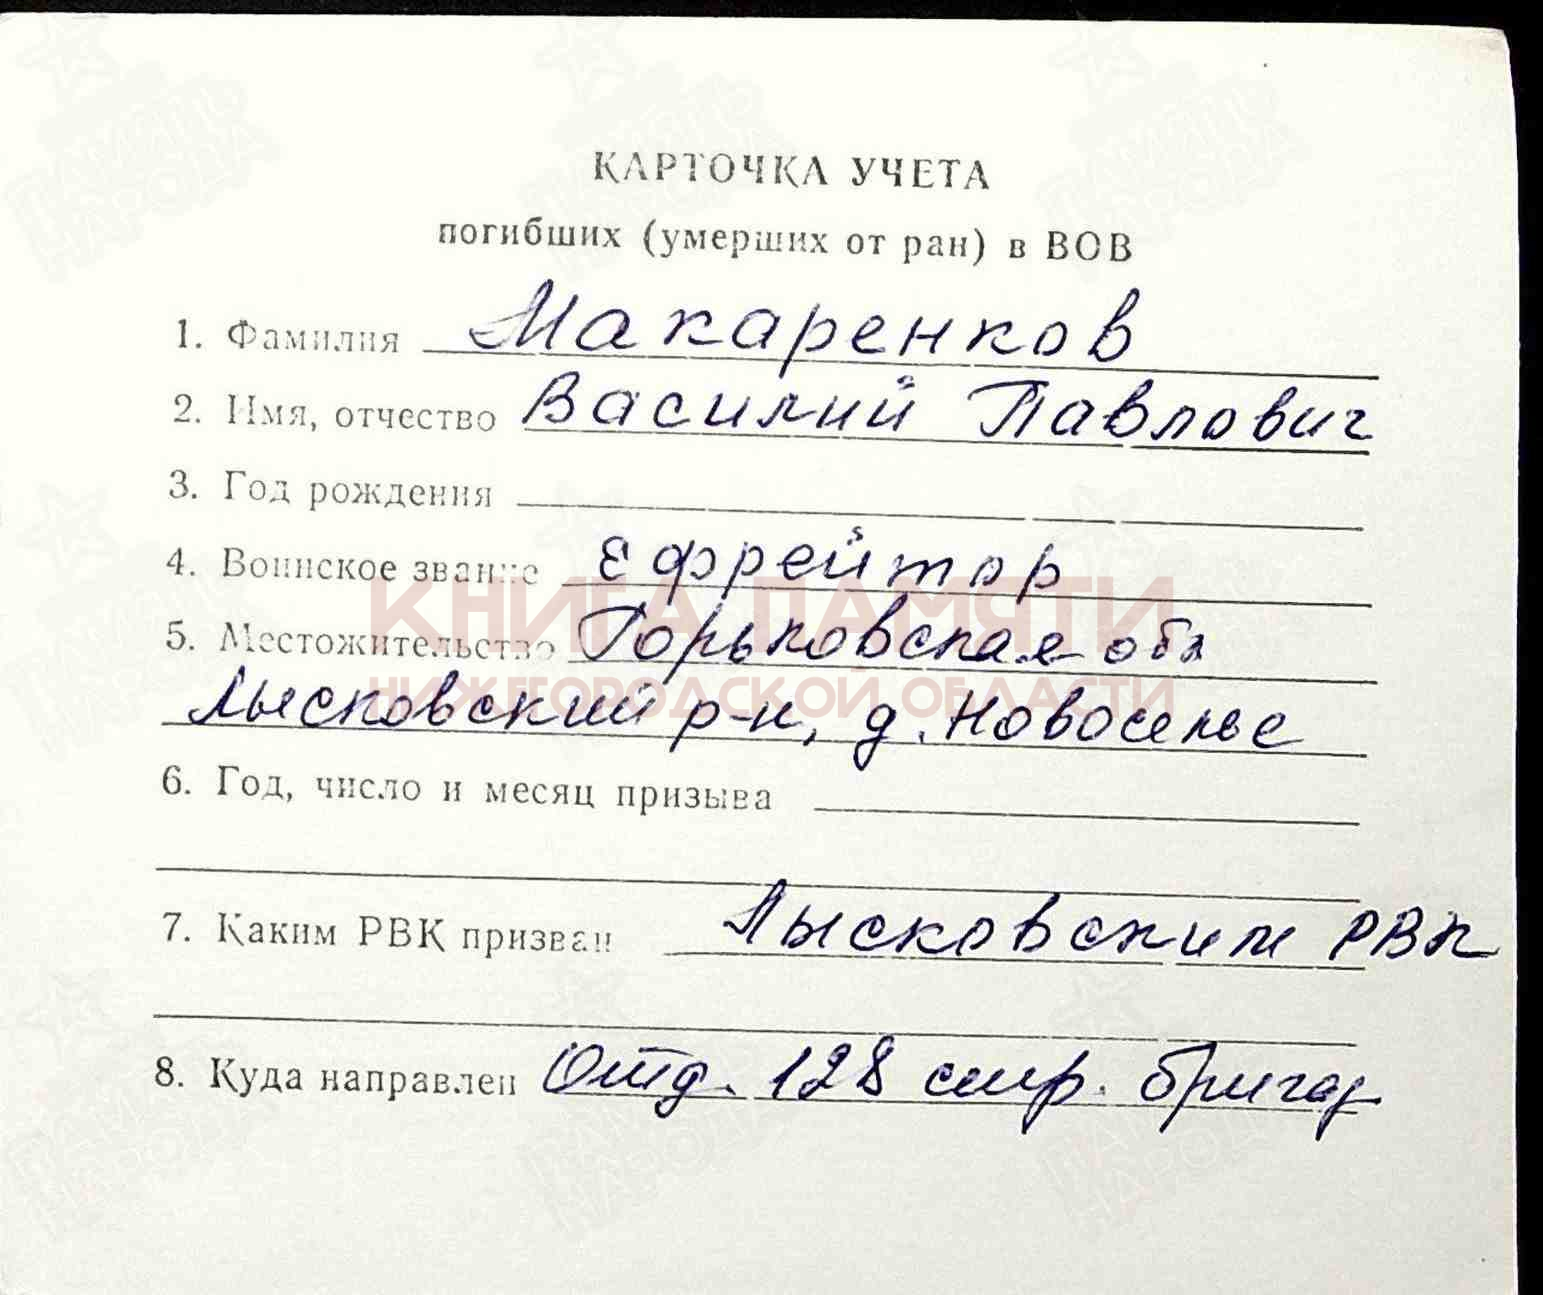 КАРТОЧКА УЧЕТА
погибших (умерших от ран) в ВОВ
1. Фамилия Макаренков
2. Имя, отчество Василий Павлович
3. Год рождения
4. Воинское звание ефрейтор
КНИГА ПАМЯТИ
5. Местожительство Горьковская обл
НИЖЕГОРОДСКОЙ ОБЛАСТИ
Лысковский р-н, д. Новоселье
6. Год, число и месяц призыва
7. Каким РВК призван Лысковским РВК
8. Куда направлен Отд. 128 стр. бригад
ПАМЯТЬ НАРОДА